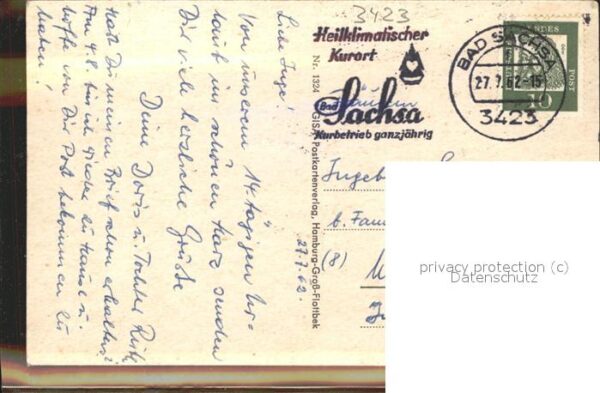 3423
Heilklimatischer
Kurort
Bad
Sachsa
Kurbetrieb ganzjährig
BAD SACHSA
27.7.62-15
3423
BUNDES
POST
10
Nr. 1324
GISA Postkartenverlag, Hamburg-Groß-Flottbek
27.7.62.
Liebe Inge!
Von unserem 14tägigen Ur-
laub im schönen Harz senden
Dir viele herzliche Grüße
Deine Doris u. Tochter
Hast Du meinen Brief schon erhalten?
Am 4.8. bin ich wieder zu Hause u.
hoffe von Dir Post bekommen zu
haben!
Fräulein
b. Fam
(8)
privacy protection (c)
Datenschutz